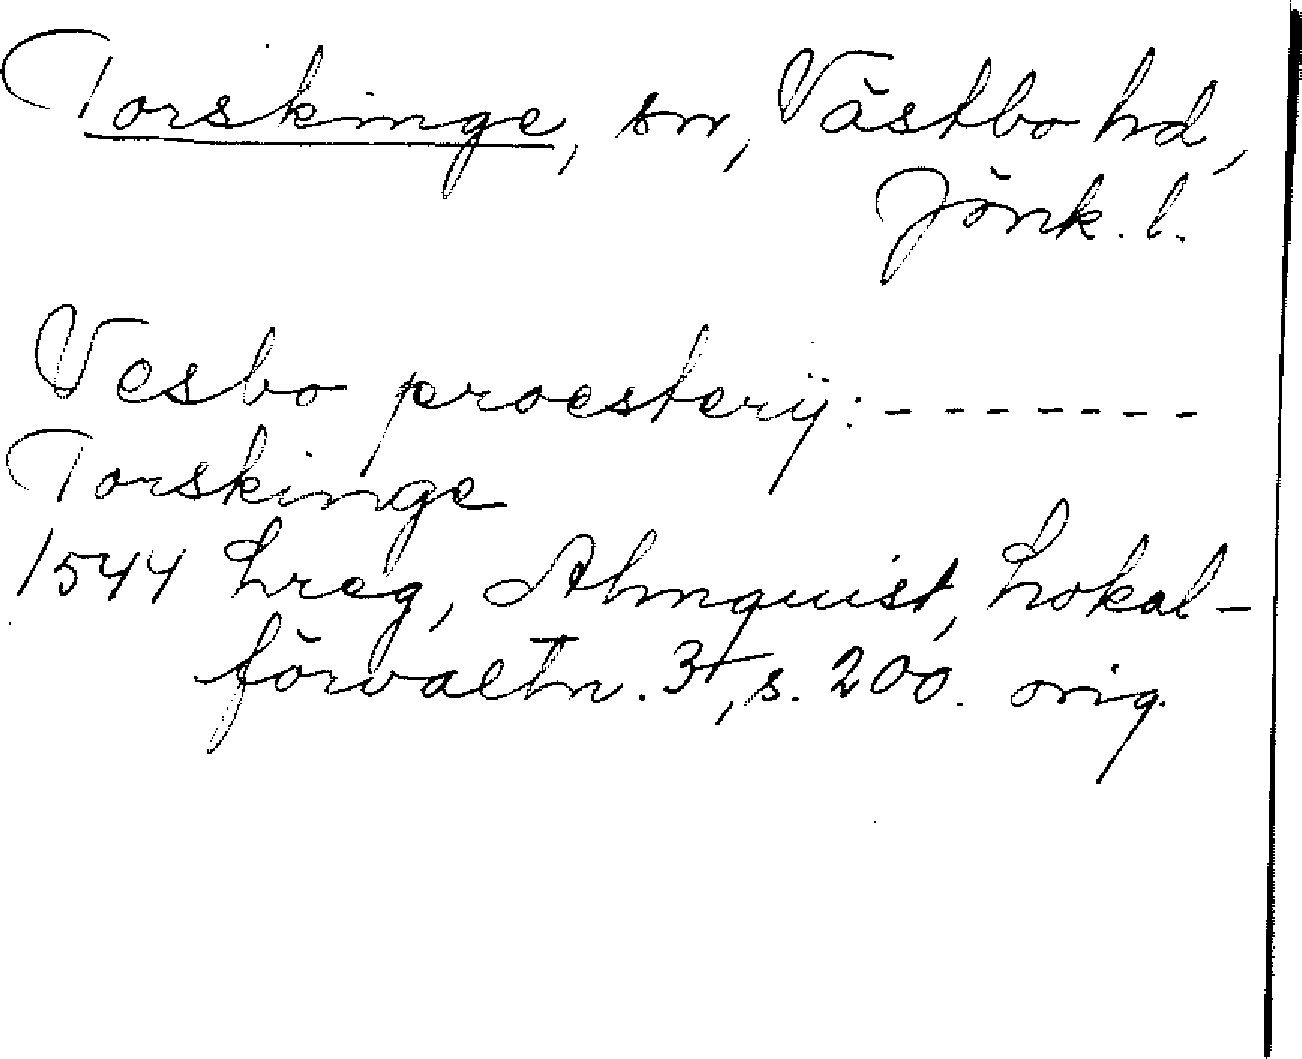 Torskinge, sn, Västbo hd,
Jönk. l.
Vesbo proesterÿ: - - - - - - - -
Torskinge
1544 Lreg, Almquist, Lokal-
förvaltn. 3, s. 200. orig.